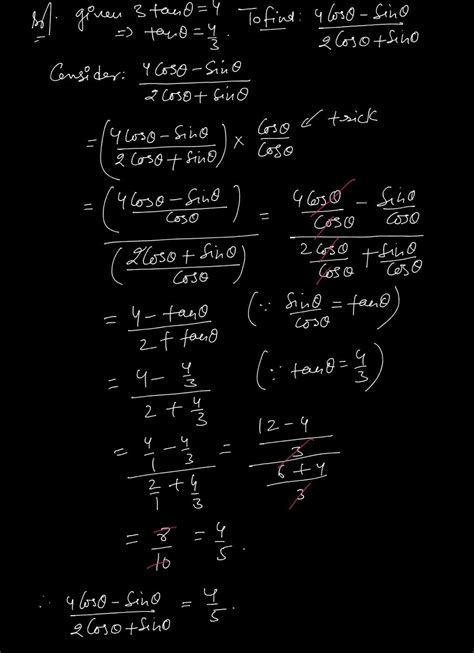 Sol. given 3 tanθ = 4 To find: (4 Cosθ - Sinθ)/(2 Cosθ + Sinθ)
⇒ tanθ = 4/3.
Consider: (4 Cosθ - Sinθ)/(2 Cosθ + Sinθ)
= ((4 Cosθ - Sinθ)/(2 Cosθ + Sinθ)) × Cosθ/Cosθ ← trick
= ((4 Cosθ - Sinθ)/Cosθ)/((2 Cosθ + Sinθ)/Cosθ) = (4 Cosθ/Cosθ - Sinθ/Cosθ)/(2 Cosθ/Cosθ + Sinθ/Cosθ)
= (4 - tanθ)/(2 + tanθ) (∵ Sinθ/Cosθ = tanθ)
= (4 - 4/3)/(2 + 4/3) (∵ tanθ = 4/3)
= (4/1 - 4/3)/(2/1 + 4/3) = ((12 - 4)/3)/((6 + 4)/3)
= 8/10 = 4/5.
∴ (4 Cosθ - Sinθ)/(2 Cosθ + Sinθ) = 4/5.